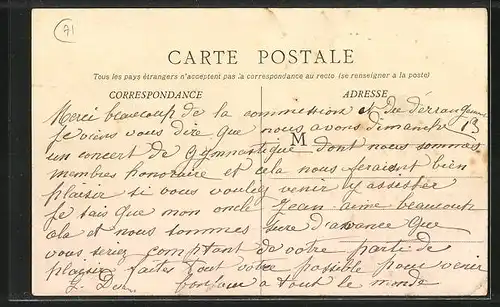 71
CARTE POSTALE
Tous les pays étrangers n'acceptent pas la correspondance au recto (se renseigner à la poste)
CORRESPONDANCE ADRESSE
Merci beaucoup de la commission et du dérangement
Je viens vous dire que nous avons dimanche 13
un concert de Gymnastique dont nous sommes
M
membres honoraire et cela nous feraient bien
plaisir si vous vouley venir y assister
Je sais que mon oncle Jean aime beaucoup
cela et nous sommes sure d'avance que
vous seriez comptant de votre partie de
plaisir faites tout votre possible pour venir
bonjour a tout le monde